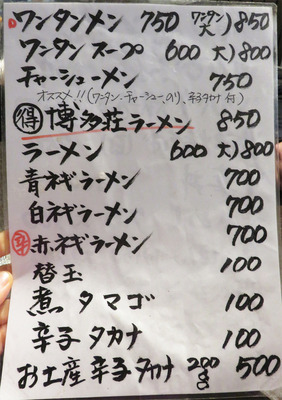 ワンタンメン 750 ワンタン大)850
ワンタンスープ 600 大)800
チャーシューメン 750
オススメ!!(ワンタン、チャーシュー、のり、辛子タカナ付)
得 博多荘ラーメン 850
ラーメン 600 大)800
青ネギラーメン 700
白ネギラーメン 700
辛 赤ネギラーメン 700
替玉 100
煮タマゴ 100
辛子タカナ 100
お土産辛子タカナ 200g 500